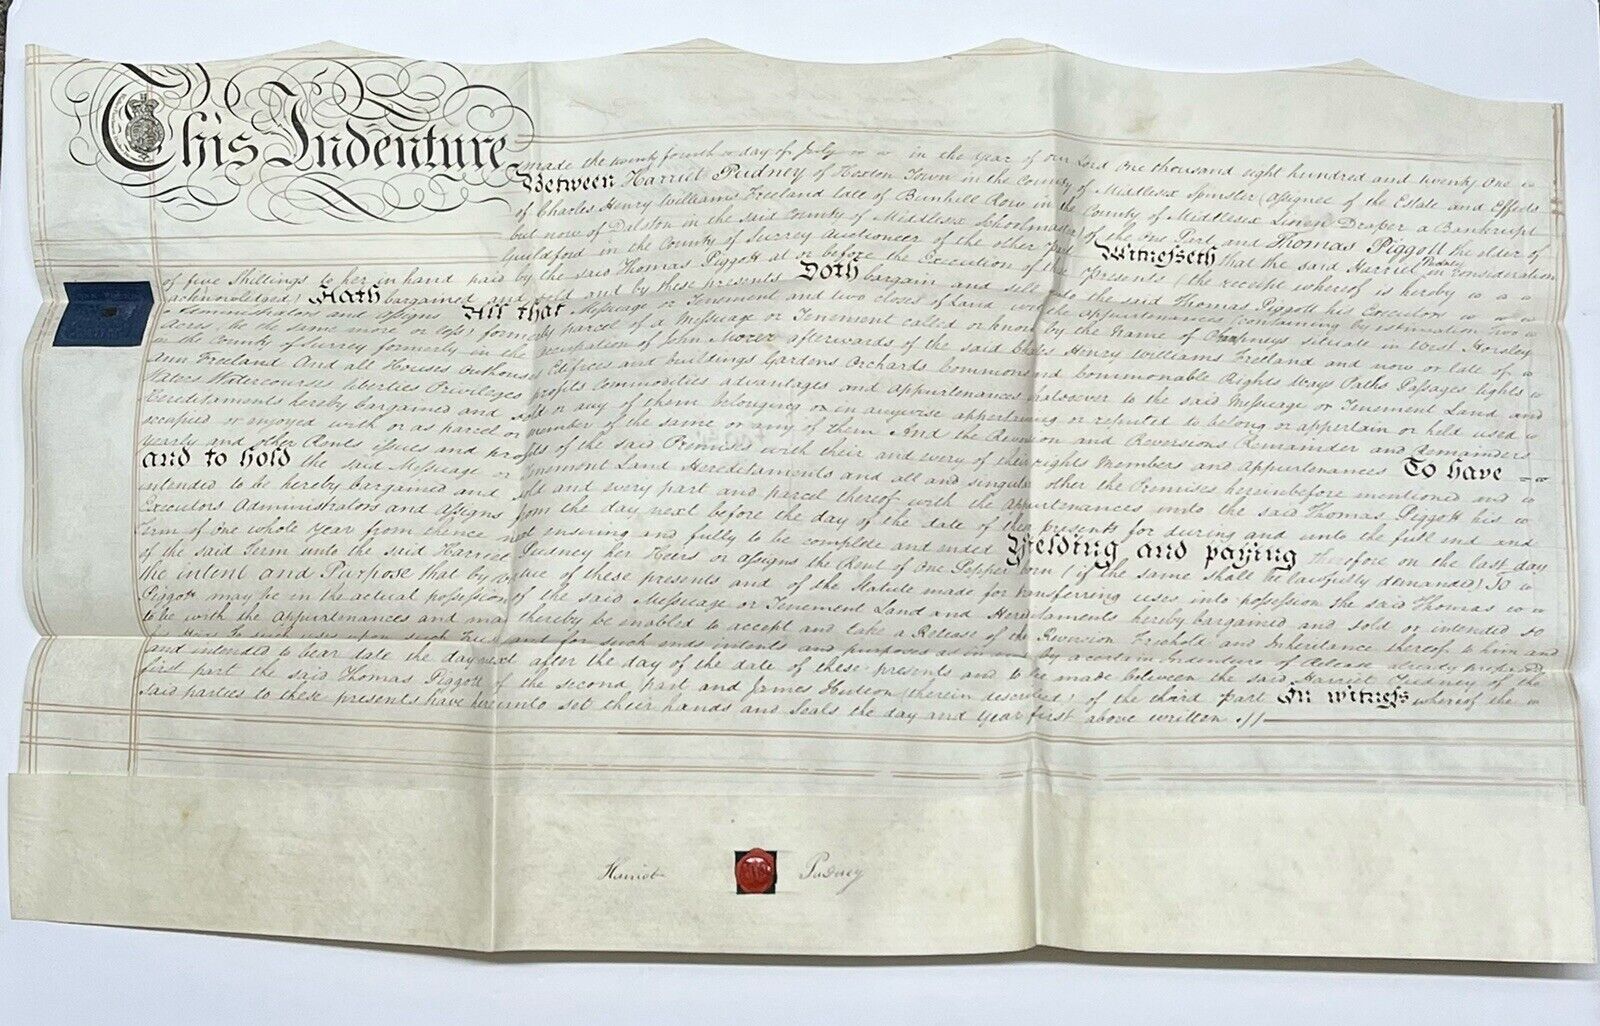 This Indenture made the twenty fourth day of July in the year of our Lord One thousand eight hundred and twenty One
Between Harriet Pudney of Hoxton Town in the County of Middlesex Spinster (Assignee of the Estate and Effects
of Charles Henry Williams Freeland late of Bunhill Row in the County of Middlesex Linen Draper a Bankrupt
but now of Dalston in the said County of Middlesex Schoolmaster) of the One Part and Thomas Piggott the elder of
Guildford in the County of Surrey Auctioneer of the other Part Witnesseth that the said Harriet Pudney in consideration
of five Shillings to her in hand paid by the said Thomas Piggott at or before the Execution of these Presents (the receipt whereof is hereby
acknowledged) Hath bargained and sold and by these presents Doth bargain and sell unto the said Thomas Piggott his Executors
Administrators and Assigns All that Messuage or Tenement and two closes of Land with the appurtenances (containing by estimation Two
Acres, be the same more or less) formerly parcel of a Messuage or Tenement called or known by the Name of Champneys situate in West Horsley
in the County of Surrey formerly in the occupation of John Morer afterwards of the said Charles Henry Williams Freeland and now or late of
Ann Freeland And all Houses Outhouses Edifices and buildings Gardens Orchards Commons and Commonable Rights Ways Paths Passages lights
Waters Watercourses liberties Privileges profits Commodities advantages and Appurtenances whatsoever to the said Messuage or Tenement Land, and
Hereditaments hereby bargained and sold or any of them belonging or in anywise appertaining or reputed to belong or appertain or held used
occupied or enjoyed with or as parcel or member of the same or any of them And the Reversion and Reversions Remainder and Remainders
yearly and other Rents issues and profits of the said Premises with their and every of their rights Members and Appurtenances To have
and to hold the said Messuage or Tenement Land Hereditaments and all and singular other the Premises hereinbefore mentioned and
intended to be hereby bargained and sold and every part and parcel thereof with the Appurtenances unto the said Thomas Piggott his
Executors Administrators and Assigns from the day next before the day of the date of these presents for during and unto the full end and
Term of one whole Year from thence next ensuing and fully to be complete and ended Yielding and paying therefore on the last day
of the said Term unto the said Harriet Pudney her Heirs or Assigns the Rent of One Pepper Corn (if the same shall be lawfully demanded) To
the intent and Purpose that by Virtue of these presents and of the Statute made for transferring uses into possession the said Thomas
Piggott may be in the actual possession of the said Messuage or Tenement Land and Hereditaments hereby bargained and sold or intended so
to be with the appurtenances and may thereby be enabled to accept and take a Release of the Reversion Freehold and Inheritance thereof to him and
his Heirs To such uses upon such Trusts and for such ends intents and purposes as in and by a certain Indenture of Release already prepared
and intended to bear date the day next after the day of the date of these presents and to be made between the said Harriet Pudney of the
first part the said Thomas Piggott of the second part and James Hutton (therein described) of the third Part In witness whereof the
said parties to these presents have hereunto set their hands and Seals the day and year first above written
Harriot Pudney